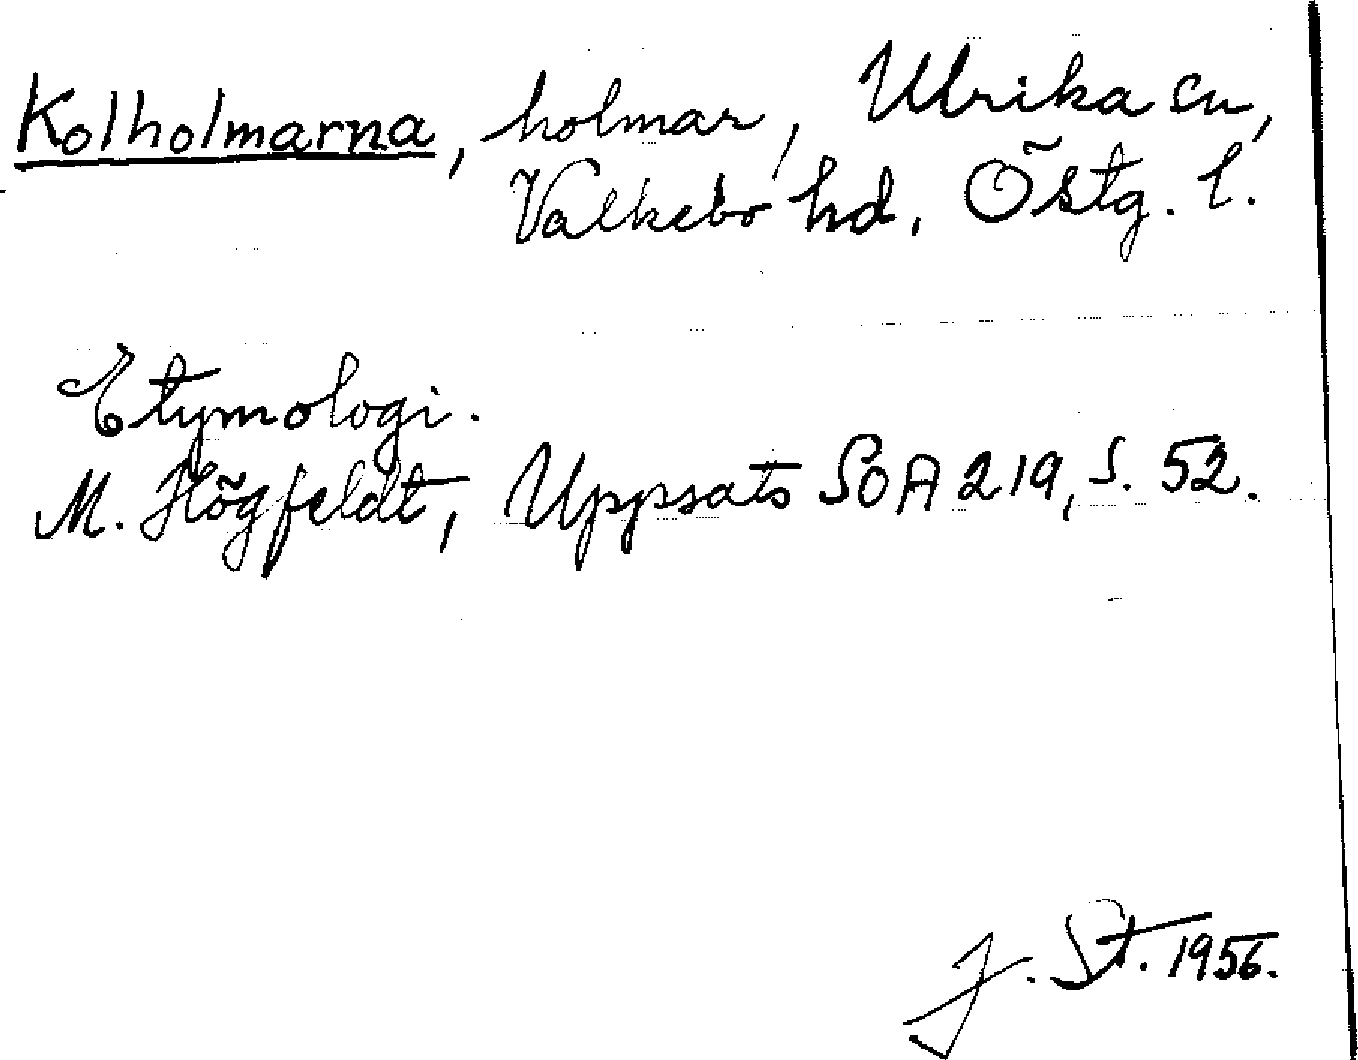 Kolholmarna, holmar, Ulrika sn,
Valkebo hd, Östg. l.
Etymologi.
M. Högfeldt, Uppsats SOA 219, s. 52.
J. St. 1956.